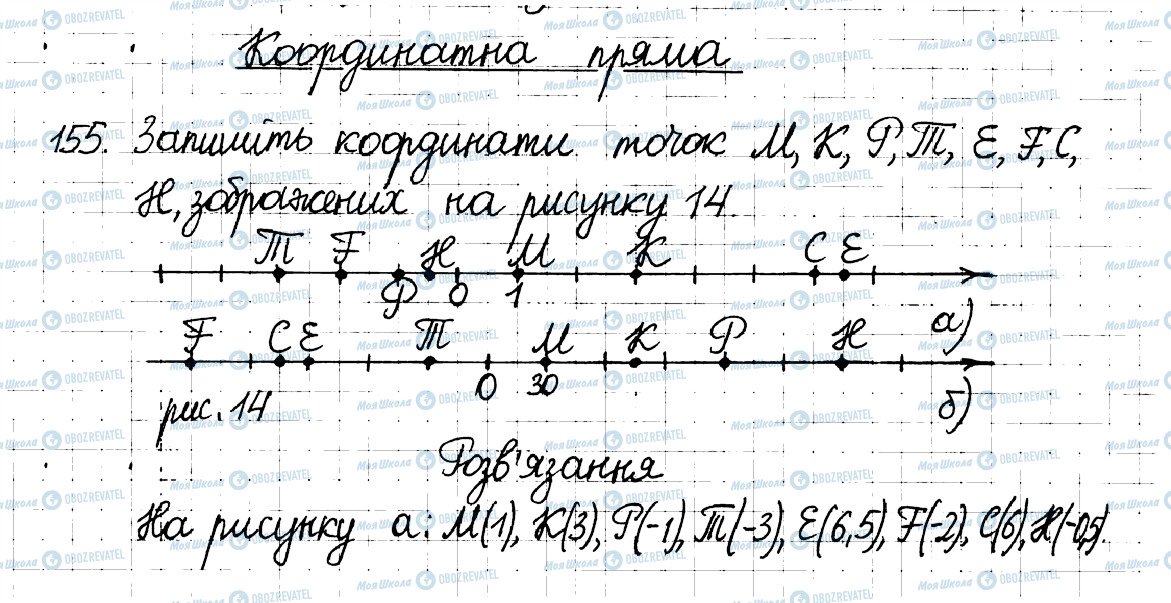 Координатна пряма
155. Запишіть координати точок M, K, P, T, E, F, C,
H, зображених на рисунку 14.
T F H M K C E
P 0 1
а)
F C E T M K P H
0 30
рис. 14
б)
Розв'язання
На рисунку а: M(1), K(3), P(-1), T(-3), E(6,5), F(-2), C(6), H(-0,5).
Моя Школа OBOZREVATEL